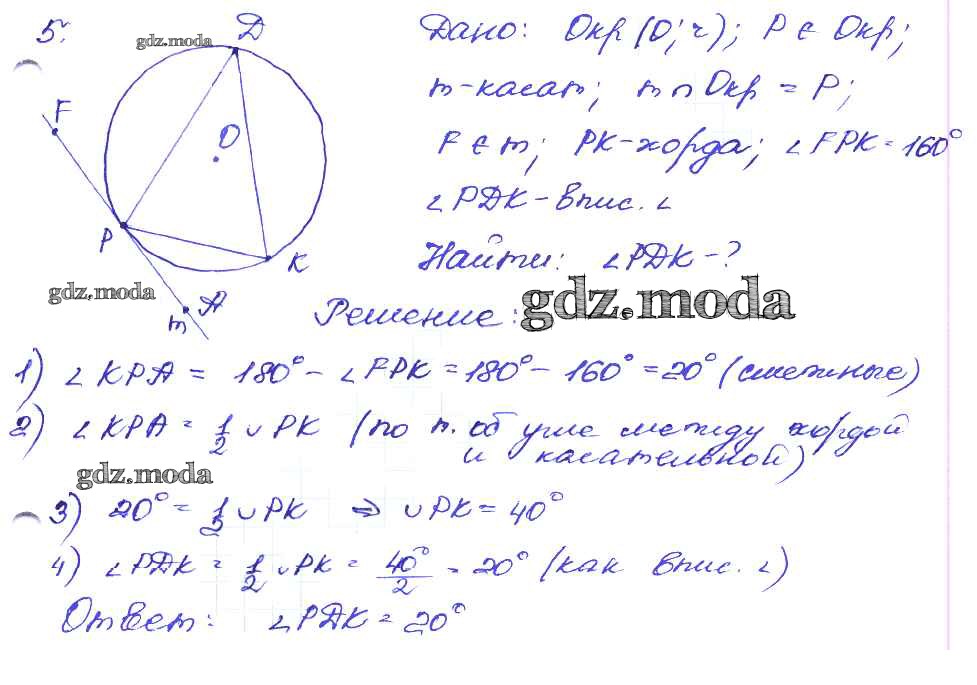 5.
gdz.moda
D
F
O
P
K
gdz.moda
A
m
Дано: Окр(O; r); P ∈ Окр;
m-касат; m ∩ Окр = P;
F ∈ m; PK-хорда; ∠FPK = 160°
∠PDK - впис. ∠
Найти: ∠PDK - ?
gdz.moda
Решение:
1) ∠KPA = 180° - ∠FPK = 180° - 160° = 20° (смежные)
2) ∠KPA = 1/2 ∪PK (по т. об угле между хордой
и касательной)
gdz.moda
3) 20° = 1/2 ∪PK ⇒ ∪PK = 40°
4) ∠PDK = 1/2 ∪PK = 40°/2 = 20° (как впис. ∠)
Ответ: ∠PDK = 20°